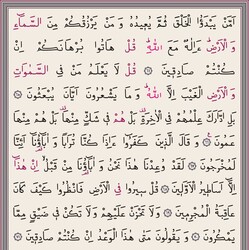 أَمَّنْ يَبْدَؤُا الْخَلْقَ ثُمَّ يُعِيدُهُ وَمَنْ يَرْزُقُكُمْ مِنَ السَّمَاءِ
وَالْأَرْضِ ءَإِلَهٌ مَعَ اللَّهِ قُلْ هَاتُوا بُرْهَانَكُمْ إِنْ
كُنْتُمْ صَادِقِينَ ۝ قُلْ لَا يَعْلَمُ مَنْ فِي السَّمَوَاتِ
وَالْأَرْضِ الْغَيْبَ إِلَّا اللَّهُ وَمَا يَشْعُرُونَ أَيَّانَ يُبْعَثُونَ ۝
بَلِ ادَّارَكَ عِلْمُهُمْ فِي الْآخِرَةِ بَلْ هُمْ فِي شَكٍّ مِنْهَا بَلْ هُمْ مِنْهَا
عَمُونَ ۝ وَقَالَ الَّذِينَ كَفَرُوا ءَإِذَا كُنَّا تُرَابًا وَءَابَاؤُنَا أَئِنَّا
لَمُخْرَجُونَ ۝ لَقَدْ وُعِدْنَا هَذَا نَحْنُ وَءَابَاؤُنَا مِنْ قَبْلُ إِنْ هَذَا
إِلَّا أَسَاطِيرُ الْأَوَّلِينَ ۝ قُلْ سِيرُوا فِي الْأَرْضِ فَانْظُرُوا كَيْفَ كَانَ
عَاقِبَةُ الْمُجْرِمِينَ ۝ وَلَا تَحْزَنْ عَلَيْهِمْ وَلَا تَكُنْ فِي ضَيْقٍ مِمَّا
يَمْكُرُونَ ۝ وَيَقُولُونَ مَتَى هَذَا الْوَعْدُ إِنْ كُنْتُمْ صَادِقِينَ ۝